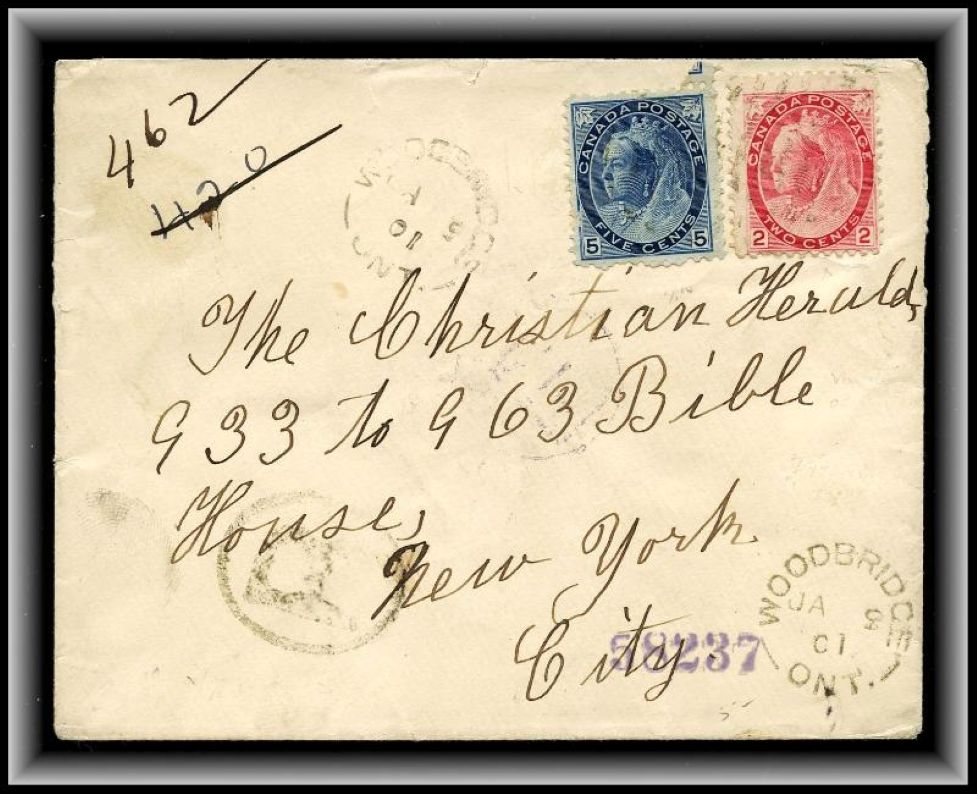 462
420
WOODBRIDGE
JA
01
ONT.
CANADA POSTAGE
5 FIVE CENTS 5
CANADA POSTAGE
2 TWO CENTS 2
The Christian Herald,
933 to 963 Bible
House,
New York
City.
R
58237
WOODBRIDGE
JA 8
01
ONT.